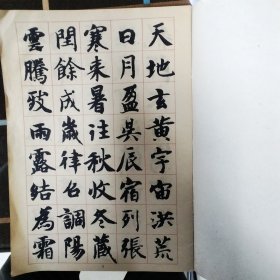 天地玄黄宇宙洪荒
日月盈昃辰宿列張
寒来暑往秋收冬藏
閏餘成歲律召調陽
雲騰致雨露結為霜